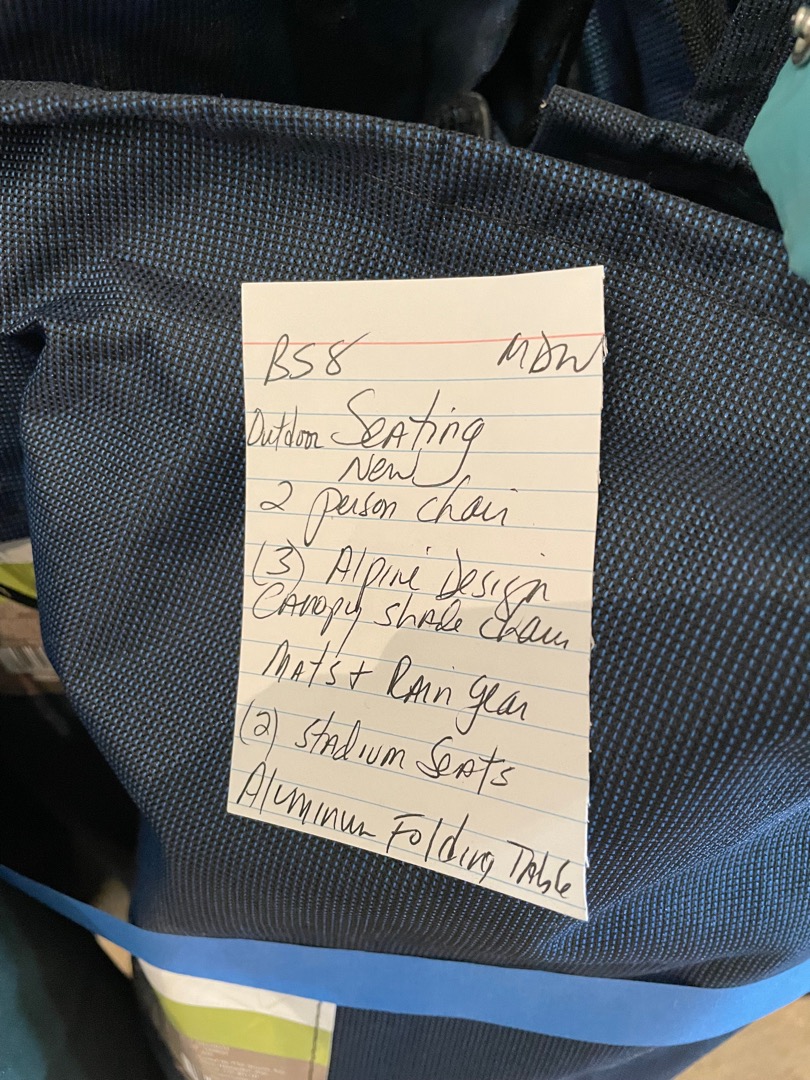 BS8 MDW
Outdoor Seating
New
2 person chair
(3) Alpine Design
Canopy shade chair
Mats + Rain gear
(2) Stadium Seats
Aluminum Folding Table